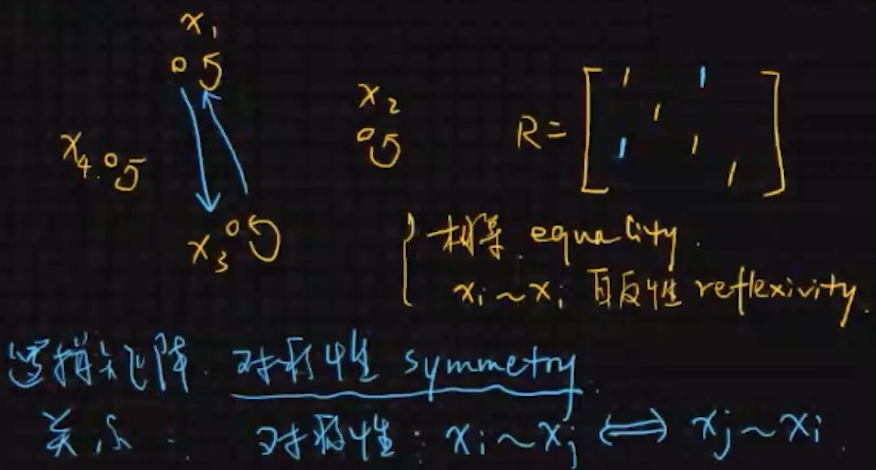 x₁
x₂
x₄
x₃
R = [1 1
1
1 1
1]
相等 equality.
xᵢ ~ xᵢ 自反性 reflexivity.
逻辑矩阵. 对称性 symmetry
关系: 对称性: xᵢ ~ xⱼ ⟺ xⱼ ~ xᵢ